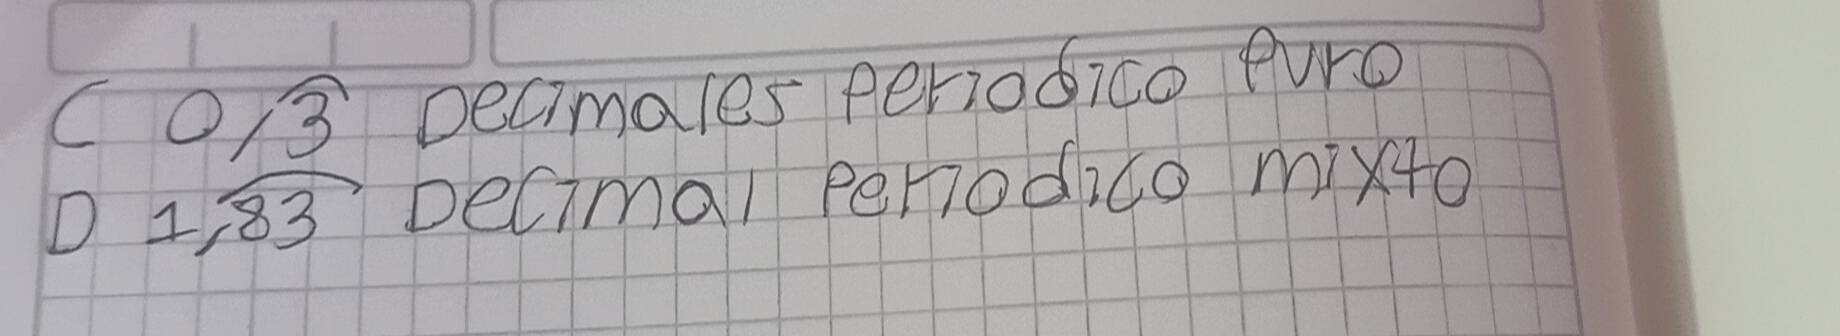 C 0,3̂ Decimales Periodico Puro
D 1,8͡3 Decimal Periodico mixto